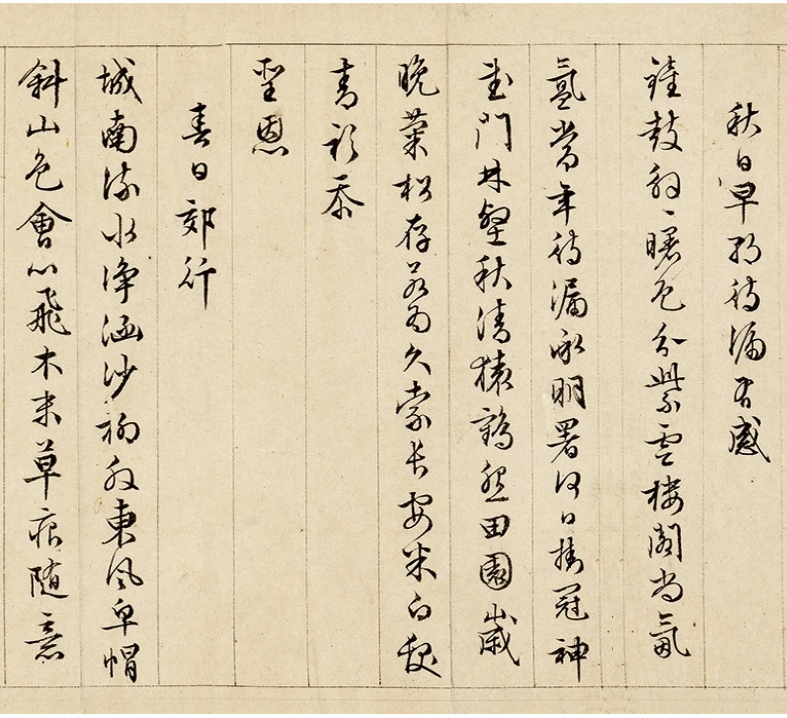 秋日早朝待漏有感
鐘鼓殷〻曙色分紫雲樓閣尚氤
氳當年待漏承明署何日挂冠神
武門林壑秋清猿鶴怨田園歲
晚菊松存若為久索長安米白髮
青衫忝
聖恩
春日郊行
城南流水淨涵沙柳外東風皁帽
斜山色會心飛木末草痕隨意